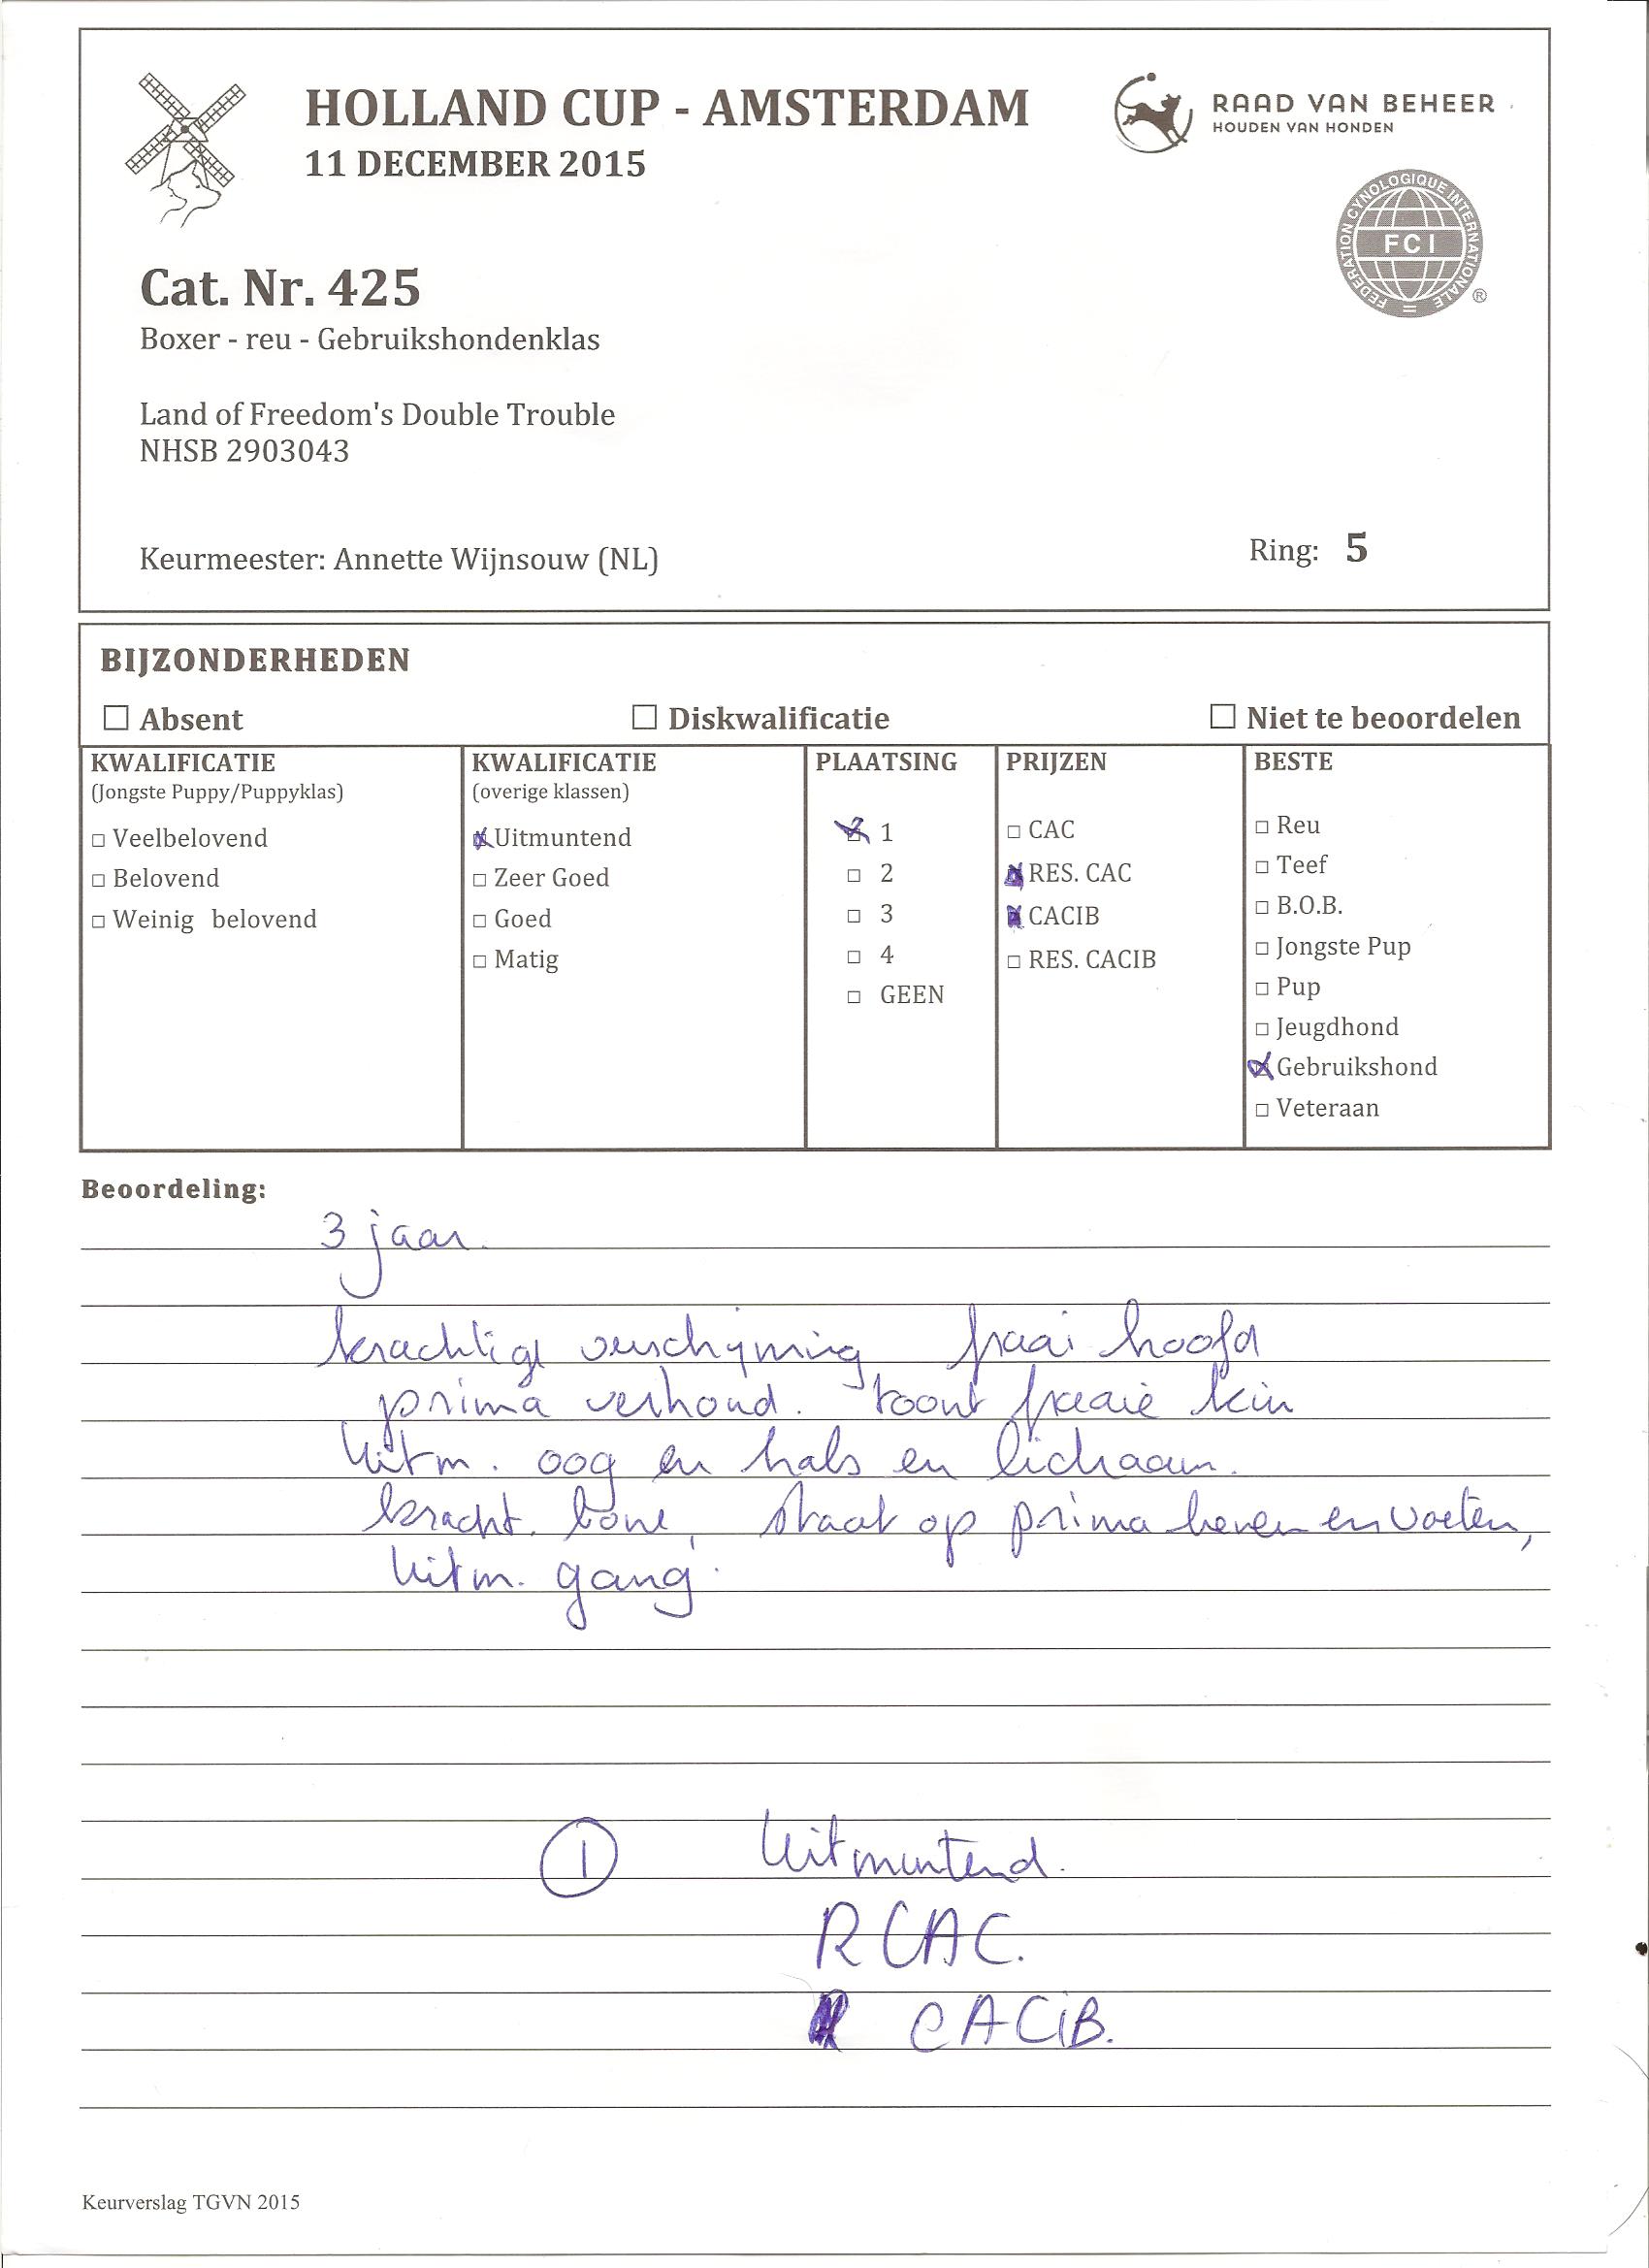 HOLLAND CUP - AMSTERDAM
11 DECEMBER 2015
RAAD VAN BEHEER
HOUDEN VAN HONDEN
FEDERATION CYNOLOGIQUE INTERNATIONALE
FCI
®
Cat. Nr. 425
Boxer - reu - Gebruikshondenklas
Land of Freedom's Double Trouble
NHSB 2903043
Keurmeester: Annette Wijnsouw (NL)
Ring: 5
BIJZONDERHEDEN
☐ Absent ☐ Diskwalificatie ☐ Niet te beoordelen
KWALIFICATIE
(Jongste Puppy/Puppyklas)
☐ Veelbelovend
☐ Belovend
☐ Weinig belovend
KWALIFICATIE
(overige klassen)
☒ Uitmuntend
☐ Zeer Goed
☐ Goed
☐ Matig
PLAATSING
☒ 1
☐ 2
☐ 3
☐ 4
☐ GEEN
PRIJZEN
☐ CAC
☒ RES. CAC
☒ CACIB
☐ RES. CACIB
BESTE
☐ Reu
☐ Teef
☐ B.O.B.
☐ Jongste Pup
☐ Pup
☐ Jeugdhond
☒ Gebruikshond
☐ Veteraan
Beoordeling:
3 jaar.
krachtige verschijning fraai hoofd
prima verhoud. toont fraaie kin
Uitm. oog en hals en lichaam.
kracht. bone, staat op prima benen en voeten,
Uitm. gang.
1 Uitmuntend.
RCAC.
CACiB.
Keurverslag TGVN 2015